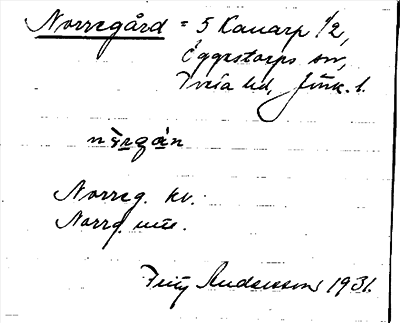 Norregård = 5 Kanarp 1/2,
Eggestorps sn,
Vista hd, Jönk. l.
nòrgán
Norreg. kv.
Norrg. mlle.
Fritz Andersson 1931.